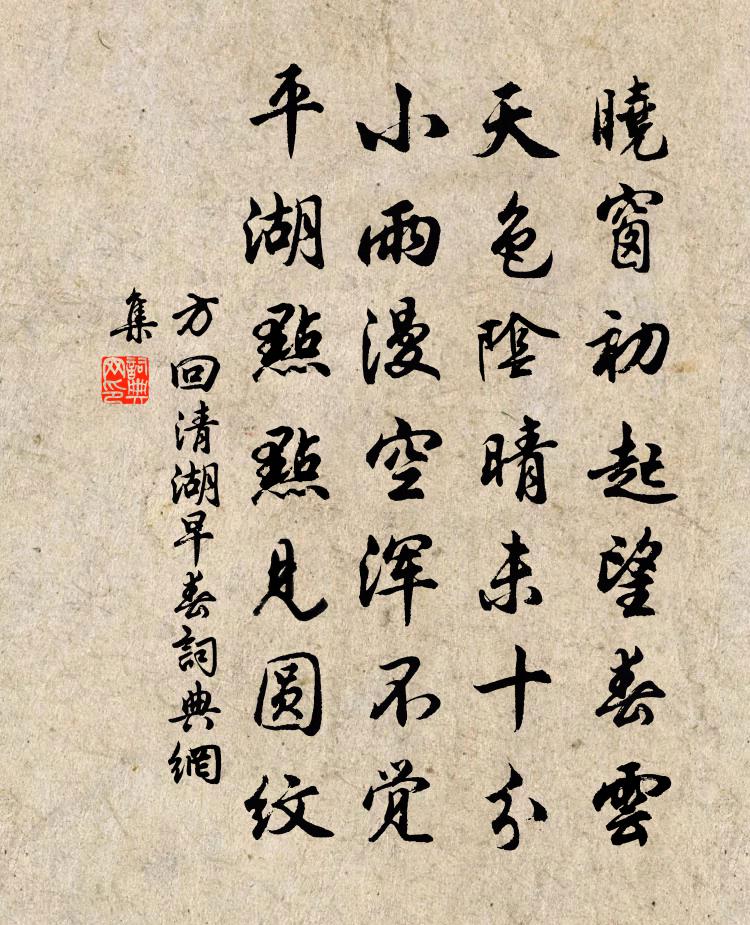 曉窗初起望春雲
天色陰晴未十分
小雨漫空渾不觉
平湖點點見圓紋
方回清湖早春詞典網
集
詞典
网印